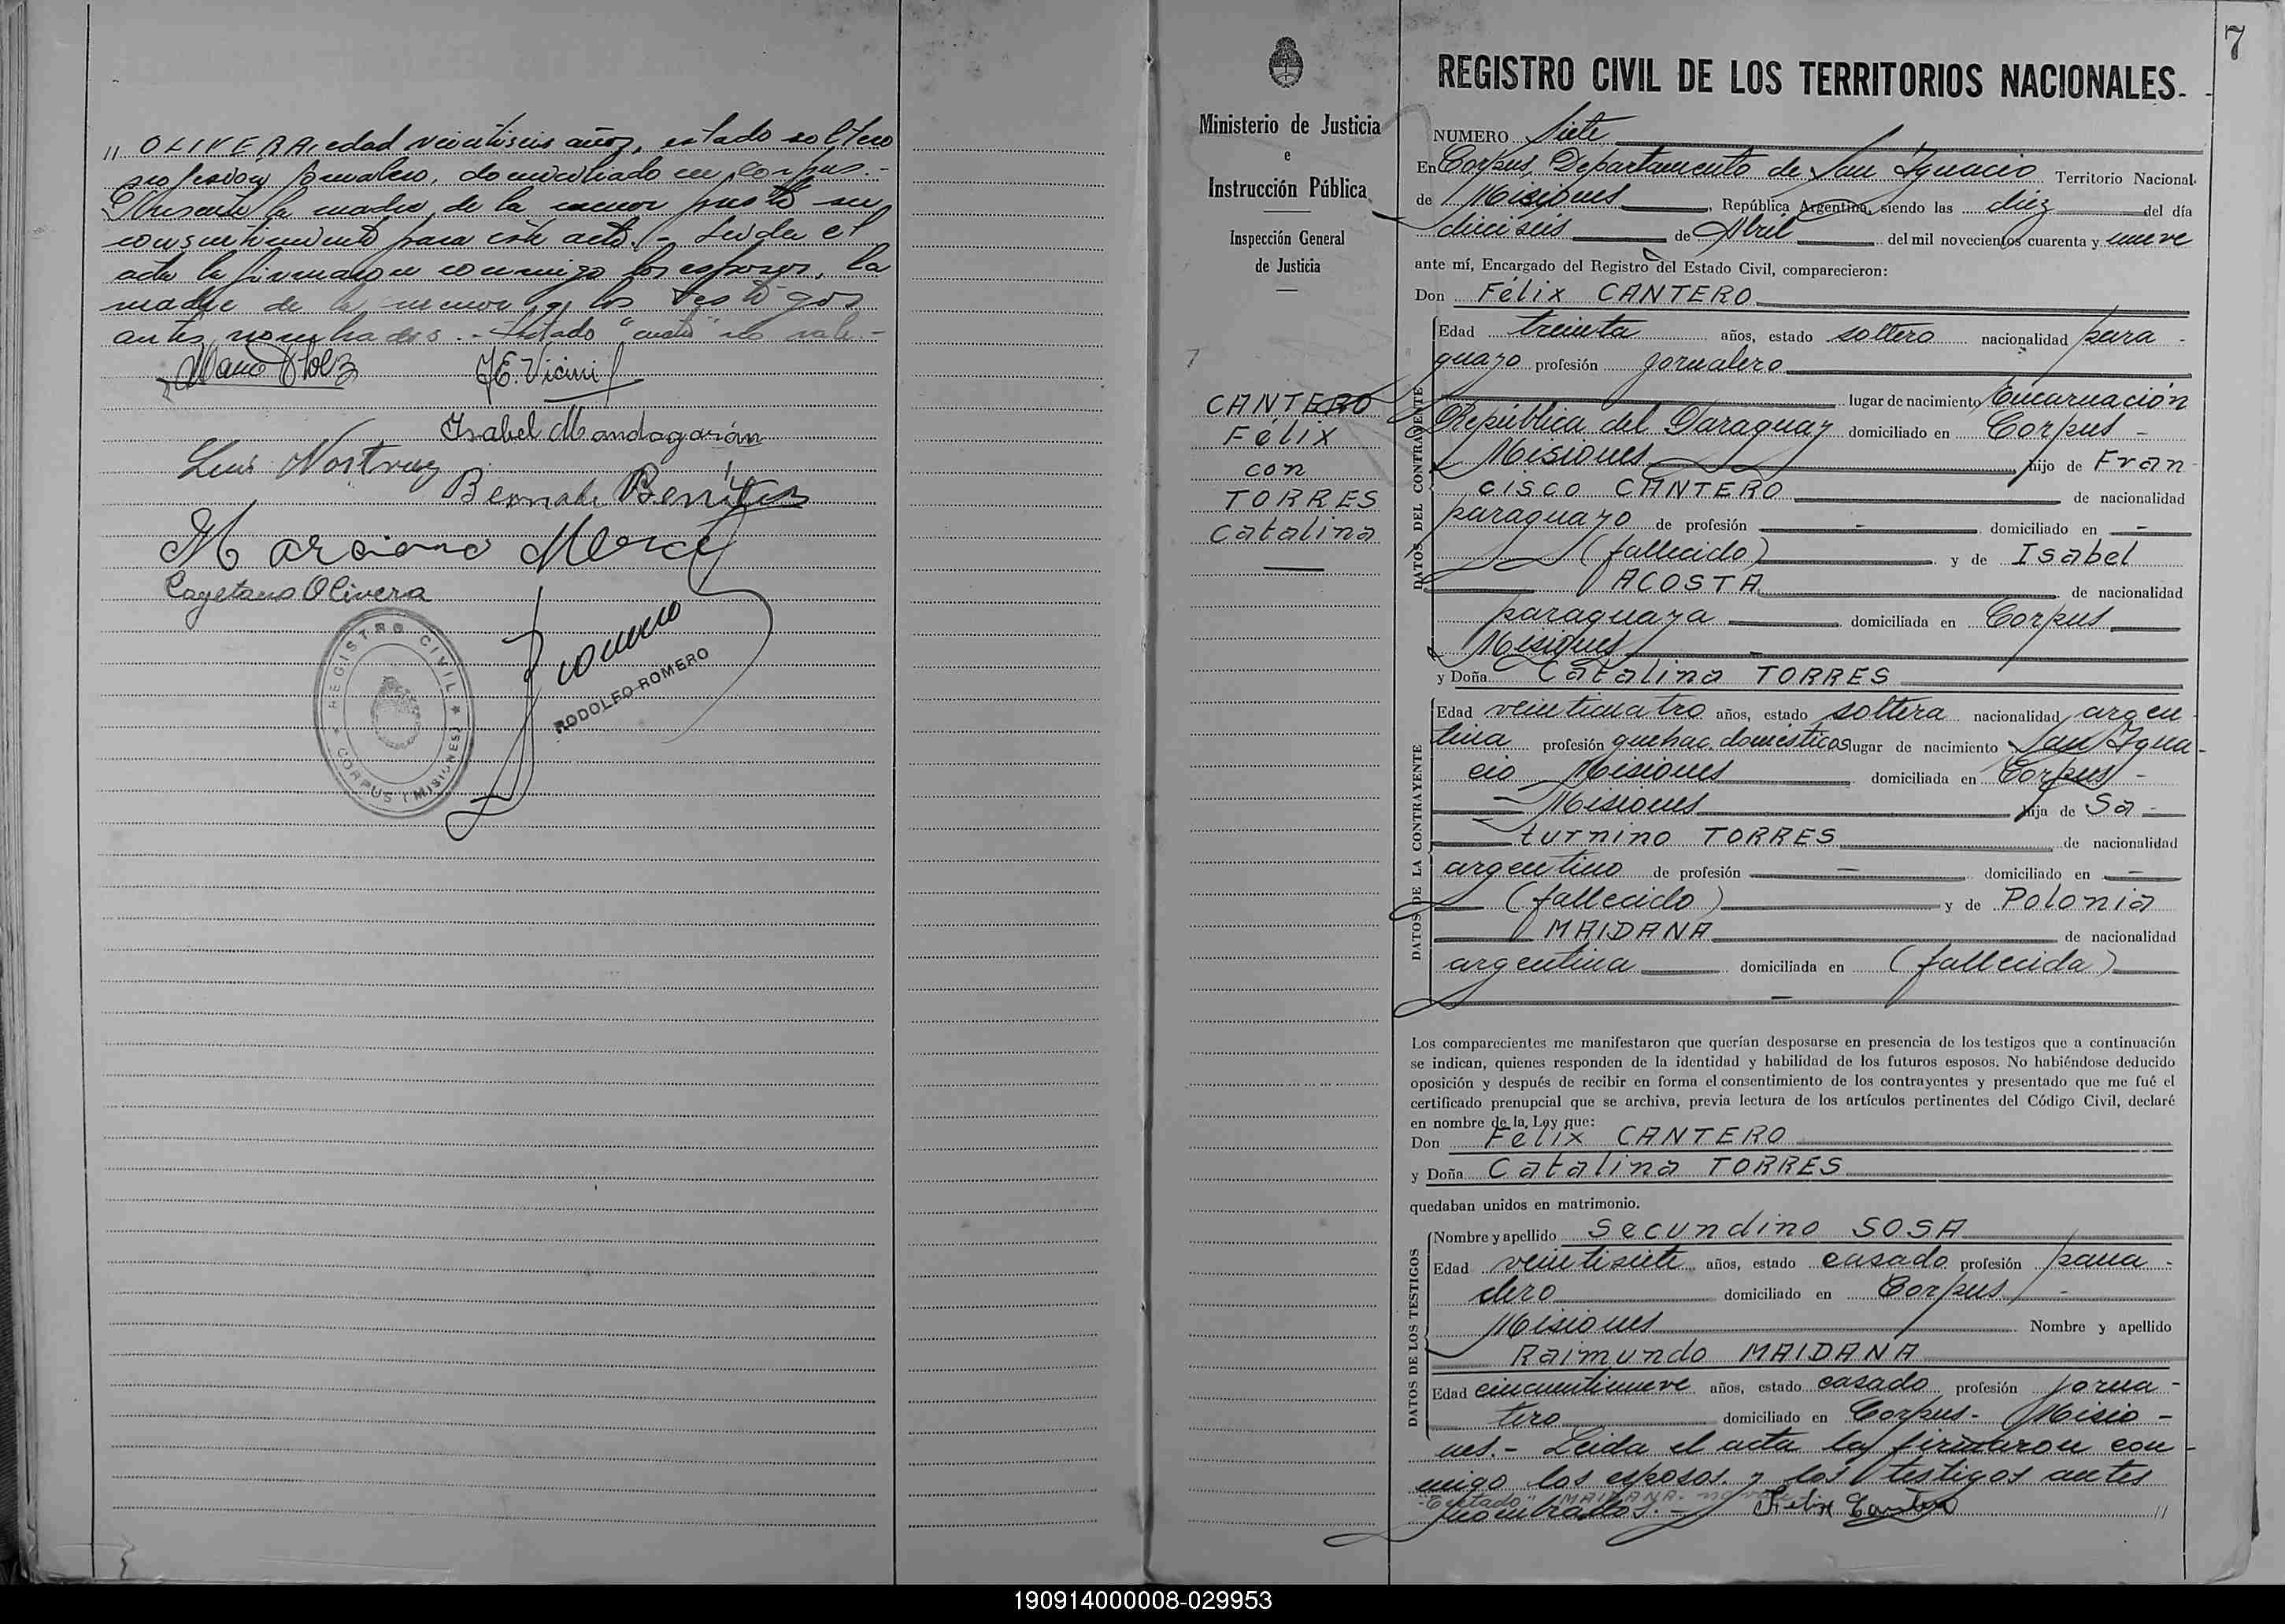 " OLIVERA, edad veintiseis años, estado soltero
profesion jornalero, domiciliado en Corpus.-
Presente la madre de la menor prestó su
consentimiento para este acto.- Leida el
acta la firmaron conmigo los esposos, la
madre de la menor y los testigos
antes nombrados.- Testado "cuatro" no vale.-
J.E. Vicini
Isabel Mandagarán
Luis
Bernabe Benitez
Marciano
Cayetano Olivera
Romero
RODOLFO ROMERO
REGISTRO CIVIL
CORPUS (MISIONES)
7
Ministerio de Justicia
e
Instrucción Pública
Inspección General
de Justicia
7
CANTERO
Félix
con
TORRES
Catalina
REGISTRO CIVIL DE LOS TERRITORIOS NACIONALES.
NUMERO Siete
En Corpus, Departamento de San Ignacio Territorio Nacional
de Misiones, República Argentina, siendo las diez del día
dieciseis de Abril del mil novecientos cuarenta y nueve
ante mí, Encargado del Registro del Estado Civil, comparecieron:
Don Félix CANTERO
DATOS DEL CONTRAYENTE
Edad treinta años, estado soltero nacionalidad para-
guayo profesión jornalero
lugar de nacimiento Encarnación
República del Paraguay domiciliado en Corpus -
Misiones hijo de Fran-
cisco CANTERO de nacionalidad
paraguayo de profesión — domiciliado en —
(fallecido) y de Isabel
ACOSTA de nacionalidad
paraguaya domiciliada en Corpus
Misiones
y Doña Catalina TORRES
DATOS DE LA CONTRAYENTE
Edad veinticuatro años, estado soltera nacionalidad argen-
tina profesión quehac. domésticos lugar de nacimiento San Igna-
cio Misiones domiciliada en Corpus -
Misiones hija de Sa-
turnino TORRES de nacionalidad
argentino de profesión — domiciliado en —
(fallecido) y de Polonia
MAIDANA de nacionalidad
argentina domiciliada en (fallecida)
Los comparecientes me manifestaron que querían desposarse en presencia de los testigos que a continuación
se indican, quienes responden de la identidad y habilidad de los futuros esposos. No habiéndose deducido
oposición y después de recibir en forma el consentimiento de los contrayentes y presentado que me fué el
certificado prenupcial que se archiva, previa lectura de los artículos pertinentes del Código Civil, declaré
en nombre de la Ley que:
Don Félix CANTERO
y Doña Catalina TORRES
quedaban unidos en matrimonio.
DATOS DE LOS TESTIGOS
Nombre y apellido Secundino SOSA
Edad veintisiete años, estado casado profesión pana-
dero domiciliado en Corpus -
Misiones Nombre y apellido
Raimundo MAIDANA
Edad cincuentinueve años, estado casado profesión jorna-
lero domiciliado en Corpus - Misio-
nes.- Leida el acta la firmaron con-
migo los esposos y los testigos antes
nombrados.- Felix Cantero "
-Testado "MAIDANA- no vale-
190914000008-029953